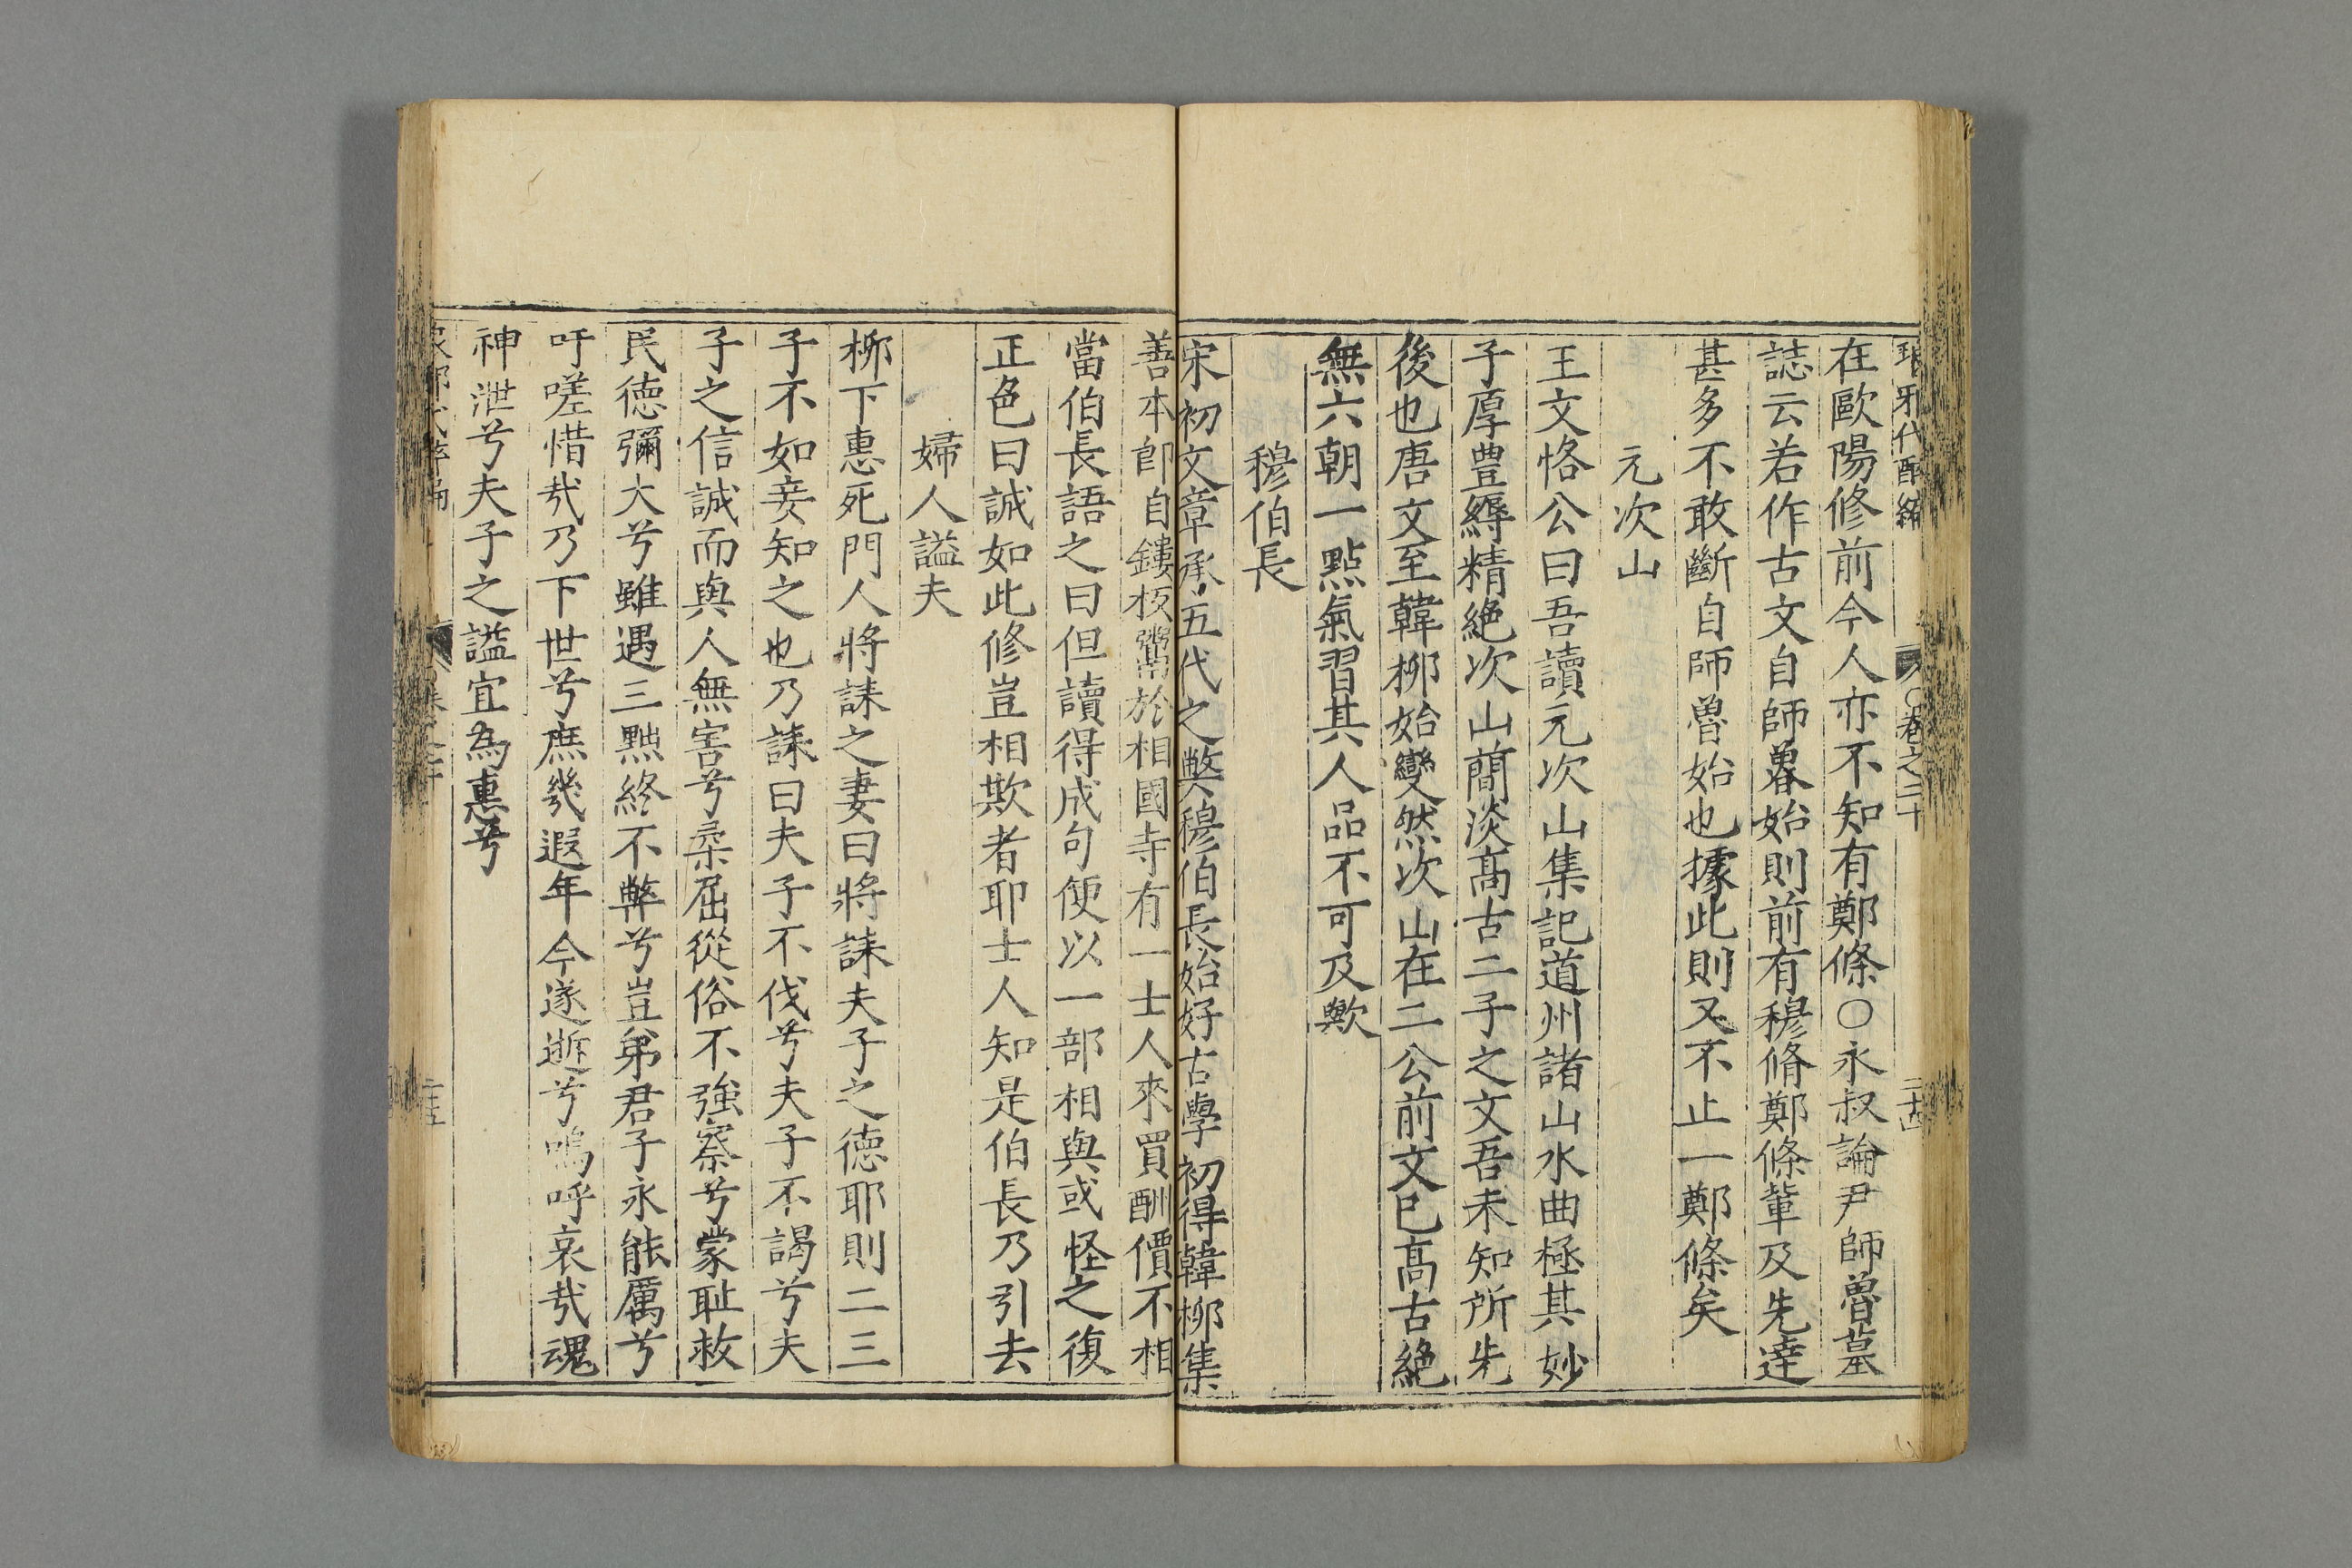 琅邪代醉編 卷之二十 二十四
在歐陽修前今人亦不知有鄭條○永叔論尹師魯墓
誌云若作古文自師魯始則前有穆脩鄭條輩及先逹
甚多不敢斷自師魯始也據此則又不止一鄭條矣
元次山
王文恪公曰吾讀元次山集記道州諸山水曲極其妙
子厚豊縟精絶次山簡淡髙古二子之文吾未知所先
後也唐文至韓柳始變然次山在二公前文已髙古絶
無六朝一點氣習其人品不可及歟
穆伯長
宋初文章承五代之弊穆伯長始好古學初得韓柳集
善本卽自鏤板鬻於相國寺有一士人來買酬價不相
當伯長語之曰但讀得成句便以一部相與或怪之復
正色曰誠如此修豈相欺者耶士人知是伯長乃引去
婦人謚夫
柳下惠死門人將誄之妻曰將誄夫子之德耶則二三
子不如妾知之也乃誄曰夫子不伐兮夫子不謁兮夫
子之信誠而與人無害兮柔屈從俗不強察兮蒙恥救
民德彌大兮雖遇三黜終不弊兮豈弟君子永能厲兮
吁嗟惜㢤乃下世兮庶幾遐年今遂逝兮嗚呼哀㢤魂
神泄兮夫子之謚宜為惠兮